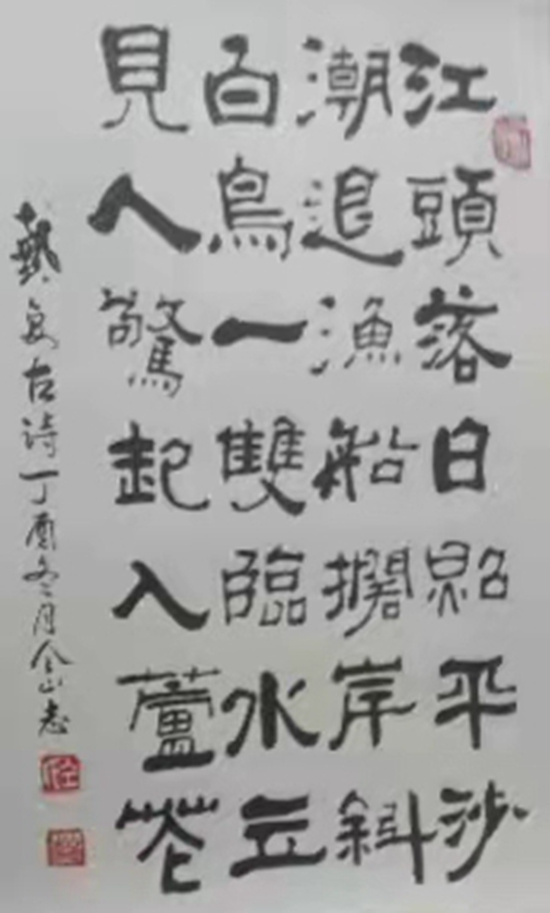 江頭落日照平沙
潮退漁船擱岸斜
百鳥一雙臨水立
見人驚起入蘆花
戴复古诗丁酉冬月山志